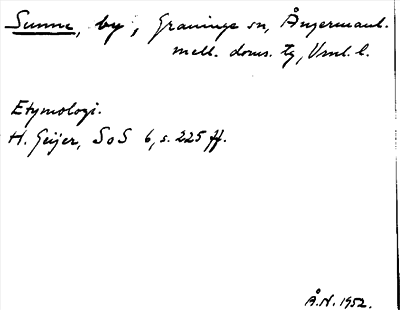 Sunne, by, Graninge sn, Ångermanl.
mell. doms. tg, Vnl. l.
Etymologi.
H. Geijer, SoS 6, s. 225 ff.
Å.N. 1952.